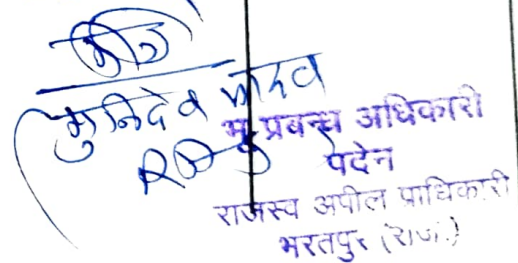 मुनिदेव यादव
भू प्रबन्ध अधिकारी
पदेन
राजस्व अपील प्राधिकारी
भरतपुर (राज.)